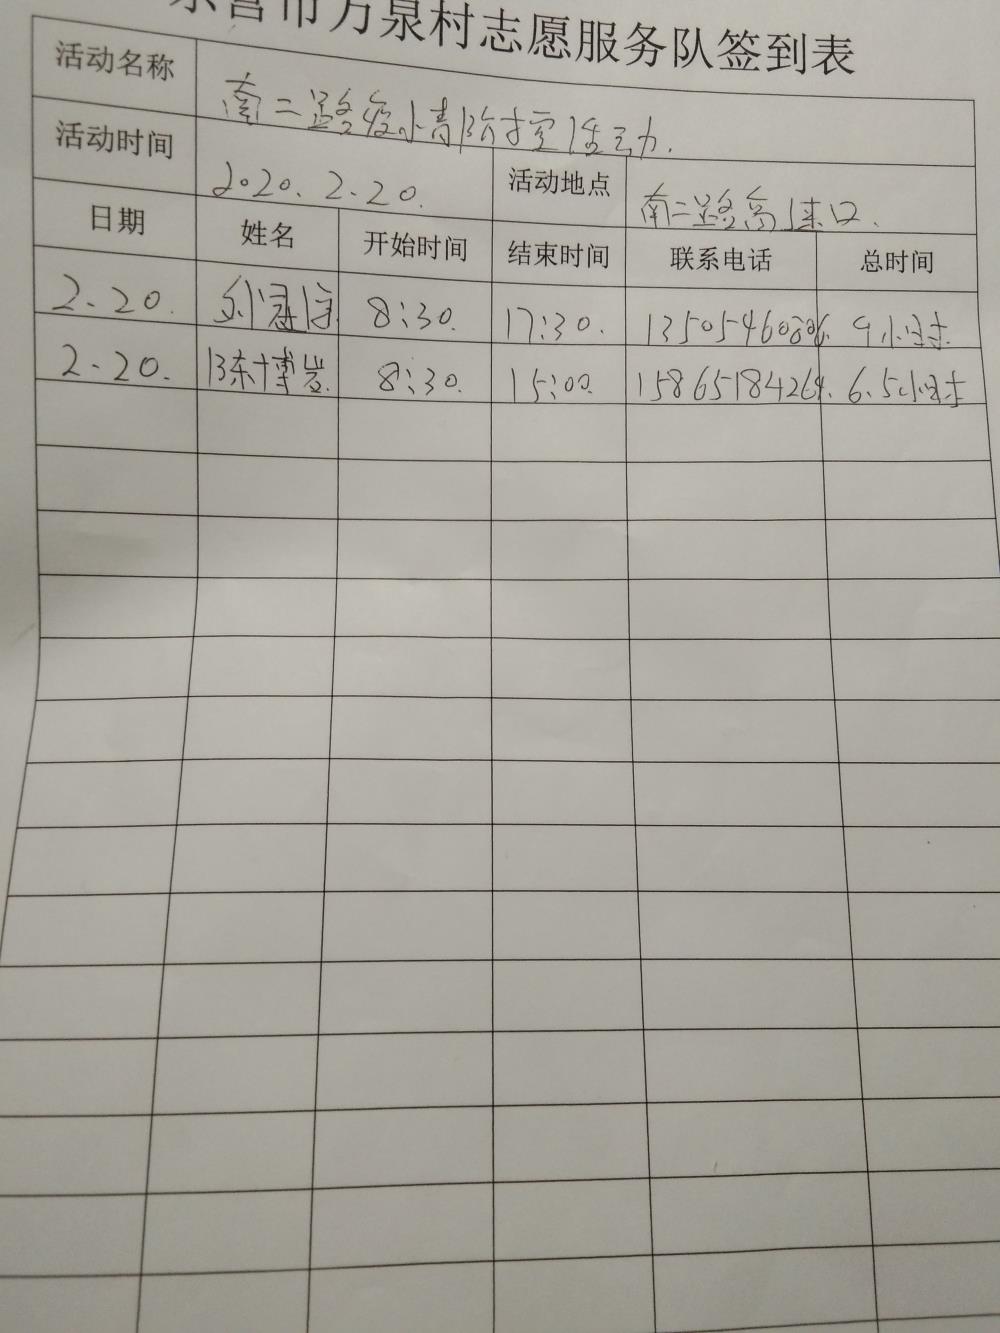 东营市万泉村志愿服务队签到表
活动名称 南二路疫情防控活动.
活动时间 2020.2.20. 活动地点 南二路高速口.
日期 姓名 开始时间 结束时间 联系电话 总时间
2.20. 8:30. 17:30. 9小时.
2.20. 陈博岩. 8:30. 15:00. 15865184264. 6.5小时